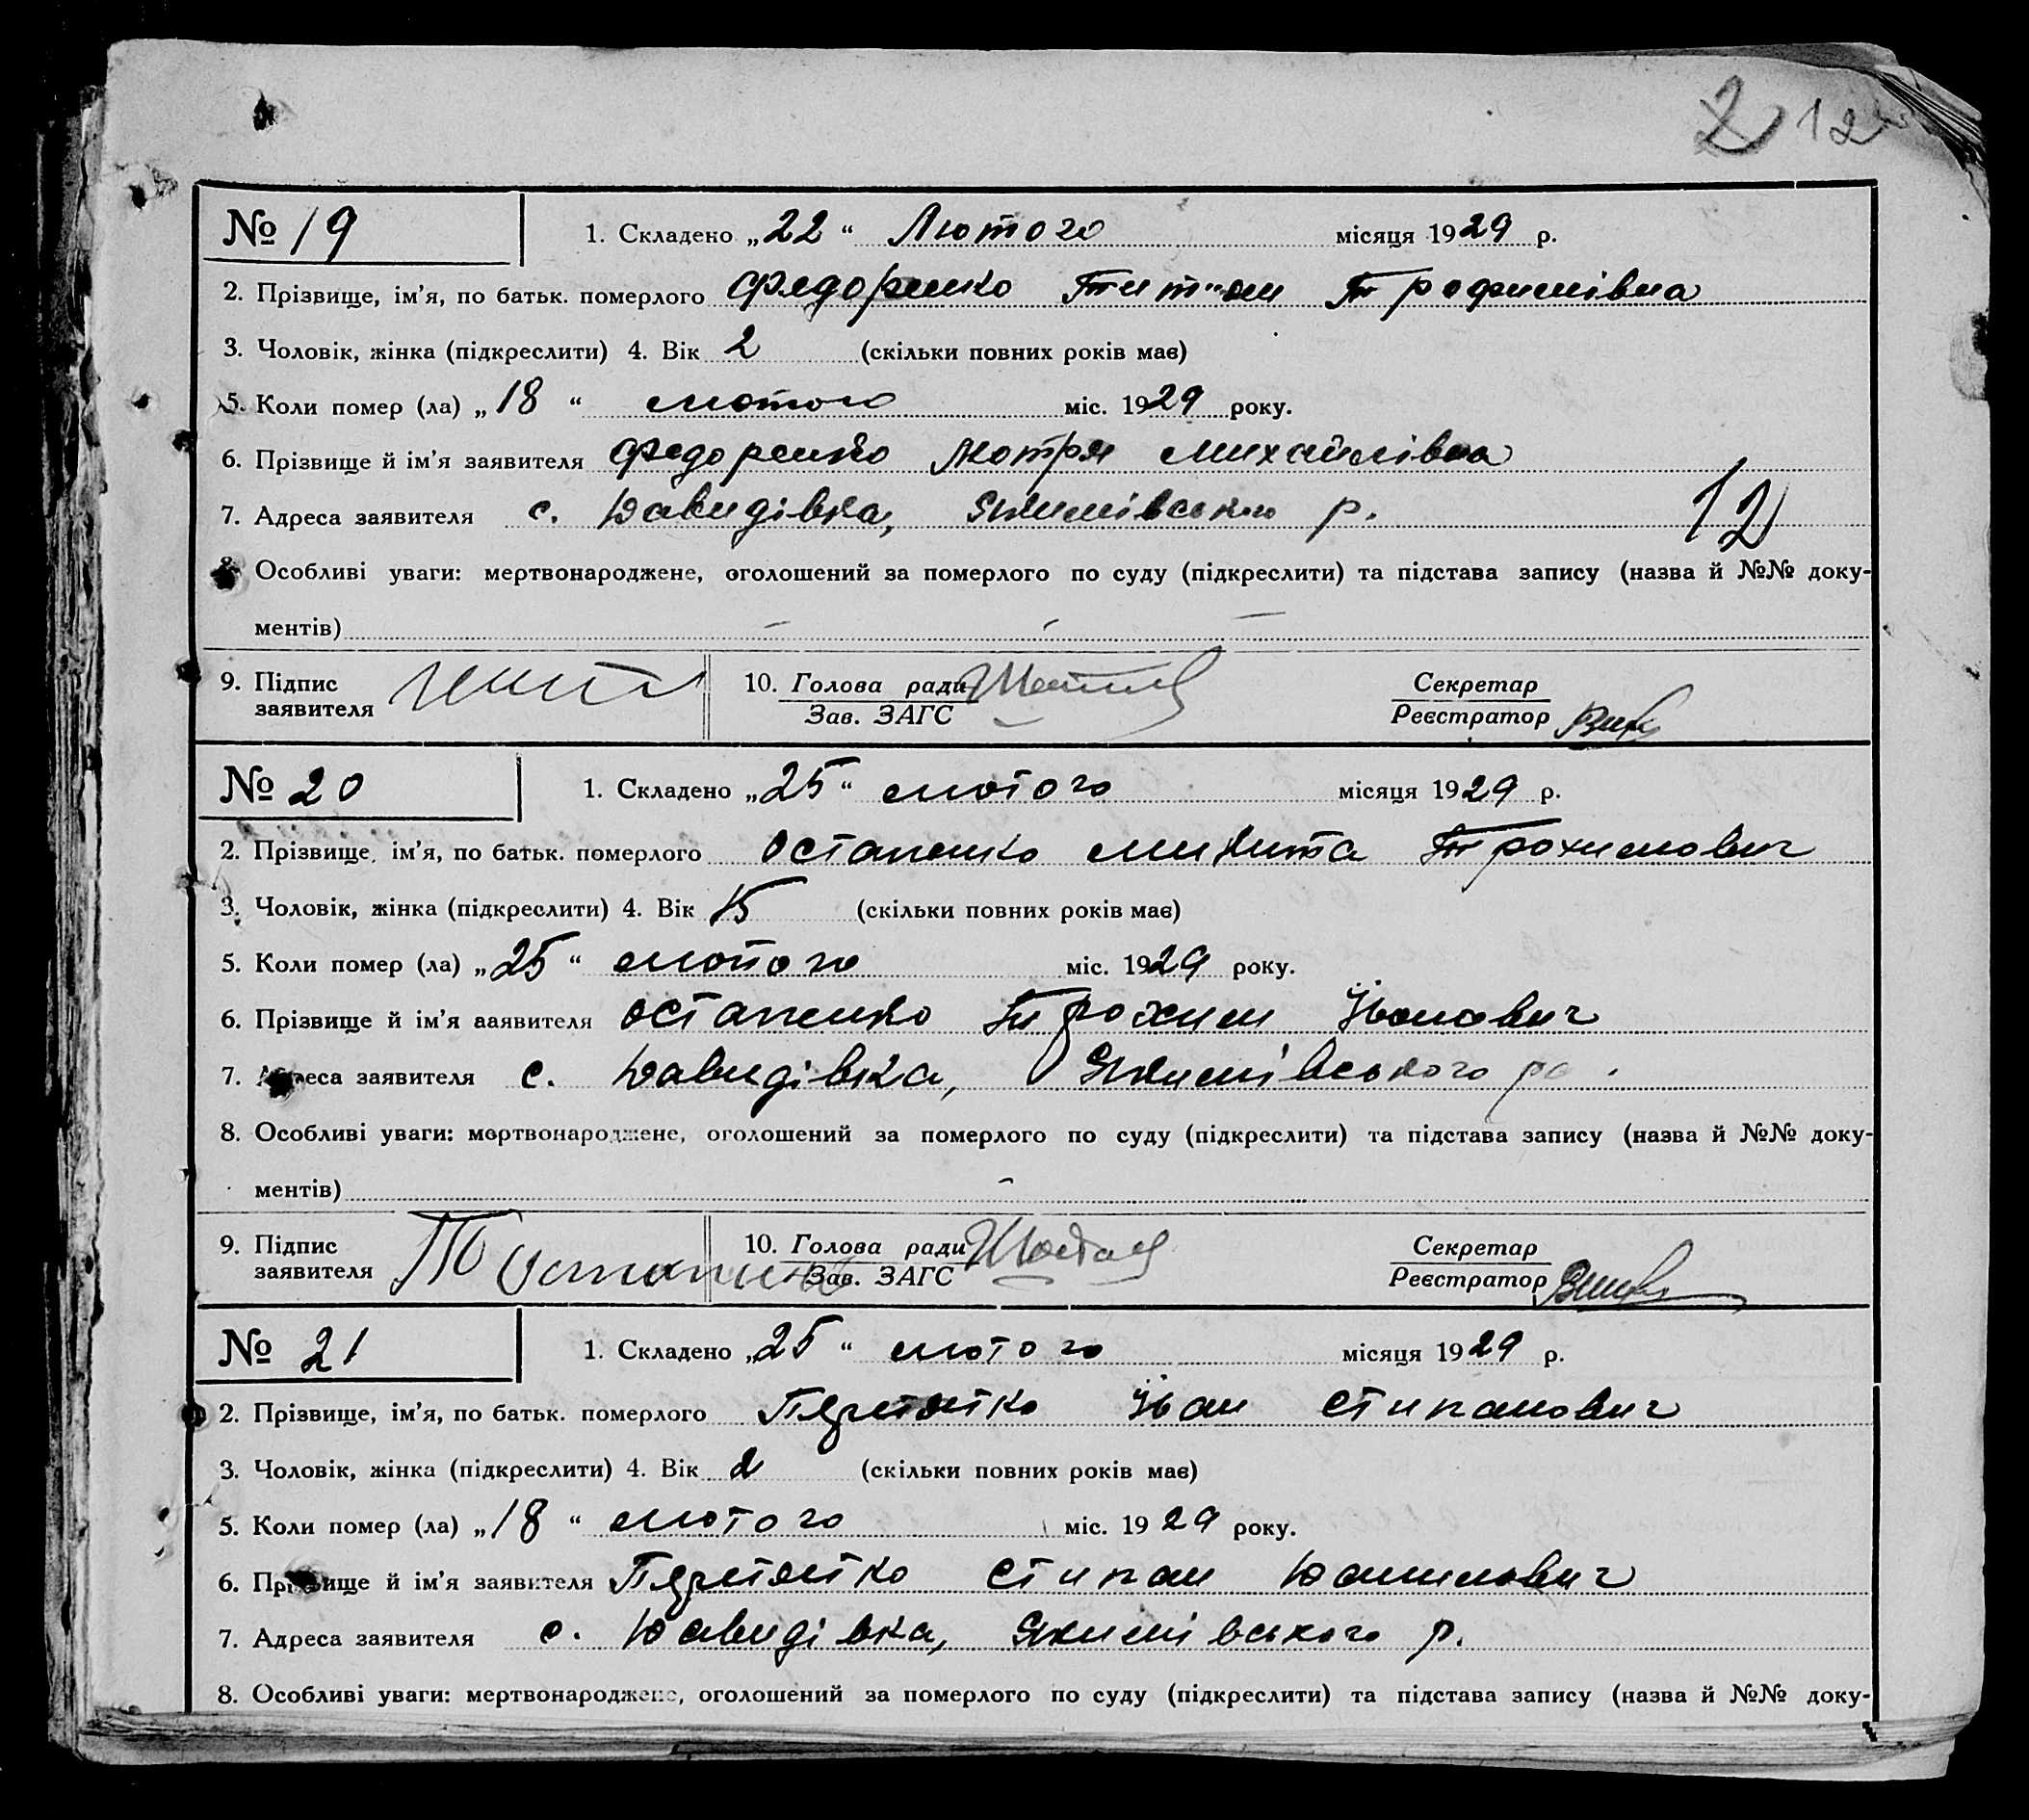 2 12
№ 19 1. Складено „22“ Лютого місяця 1929 р.
2. Прізвище, ім'я, по батьк. померлого Федоренко Трофимівна
3. Чоловік, жінка (підкреслити) 4. Вік 2 (скільки повних років має)
5. Коли помер (ла) „18“ лютого міс. 1929 року.
6. Прізвище й ім'я заявителя Федоренко Мотря Михайлівна
7. Адреса заявителя с. Давидівка, Якимівського р.
12
8. Особливі уваги: мертвонароджене, оголошений за померлого по суду (підкреслити) та підстава запису (назва й №№ доку-
ментів)
9. Підпис заявителя 10. Голова ради Секретар
Зав. ЗАГС Реєстратор
№ 20 1. Складено „25“ лютого місяця 1929 р.
2. Прізвище, ім'я, по батьк. померлого Остапенко Микита Трохимович
3. Чоловік, жінка (підкреслити) 4. Вік 15 (скільки повних років має)
5. Коли помер (ла) „25“ лютого міс. 1929 року.
6. Прізвище й ім'я заявителя Остапенко Трохим Іванович
7. Адреса заявителя с. Давидівка, Якимівського р.
8. Особливі уваги: мертвонароджене, оголошений за померлого по суду (підкреслити) та підстава запису (назва й №№ доку-
ментів)
9. Підпис заявителя Т Остапенко 10. Голова ради Секретар
Зав. ЗАГС Реєстратор
№ 21 1. Складено „25“ лютого місяця 1929 р.
2. Прізвище, ім'я, по батьк. померлого Іван Степанович
3. Чоловік, жінка (підкреслити) 4. Вік 2 (скільки повних років має)
5. Коли помер (ла) „18“ лютого міс. 1929 року.
6. Прізвище й ім'я заявителя Степан Данилович
7. Адреса заявителя с. Давидівка, Якимівського р.
8. Особливі уваги: мертвонароджене, оголошений за померлого по суду (підкреслити) та підстава запису (назва й №№ доку-